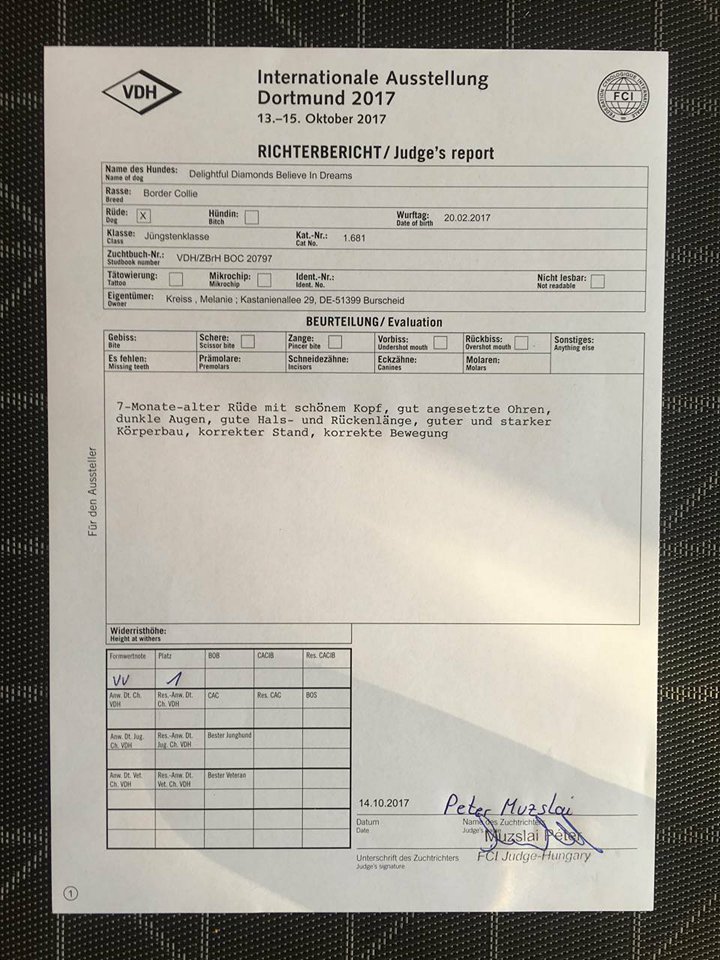 VDH
Internationale Ausstellung
Dortmund 2017
13.–15. Oktober 2017
FEDERATION CYNOLOGIQUE INTERNATIONALE
FCI
RICHTERBERICHT / Judge's report
Name des Hundes: Delightful Diamonds Believe In Dreams
Name of dog
Rasse: Border Collie
Breed
Rüde: X Hündin: Wurftag: 20.02.2017
Dog Bitch Date of birth
Klasse: Jüngstenklasse Kat.-Nr.: 1.681
Class Cat No.
Zuchtbuch-Nr.: VDH/ZBrH BOC 20797
Studbook number
Tätowierung: Mikrochip: Ident.-Nr.: Nicht lesbar:
Tattoo Mikrochip Ident. No. Not readable
Eigentümer: Kreiss , Melanie ; Kastanienallee 29, DE-51399 Burscheid
Owner
BEURTEILUNG / Evaluation
Gebiss: Schere: Zange: Vorbiss: Rückbiss: Sonstiges:
Bite Scissor bite Pincer bite Undershot mouth Overshot mouth Anything else
Es fehlen: Prämolare: Schneidezähne: Eckzähne: Molaren:
Missing teeth Premolars Incisors Canines Molars
7-Monate-alter Rüde mit schönem Kopf, gut angesetzte Ohren,
dunkle Augen, gute Hals- und Rückenlänge, guter und starker
Körperbau, korrekter Stand, korrekte Bewegung
Für den Aussteller
Widerristhöhe:
Height at withers
Formwertnote Platz BOB CACIB Res. CACIB
VV 1
Anw. Dt. Ch. Res.-Anw. Dt. CAC Res. CAC BOS
VDH Ch. VDH
Anw. Dt. Jug. Res.-Anw. Dt. Bester Junghund
Ch. VDH Jug. Ch. VDH
Anw. Dt. Vet. Res.-Anw. Dt. Bester Veteran
Ch. VDH Vet. Ch. VDH
14.10.2017 Peter Muzslai
Datum Name des Zuchtrichters
Date Judge's
Muzslai Péter
Unterschrift des Zuchtrichters FCI Judge-Hungary
Judge's signature
1